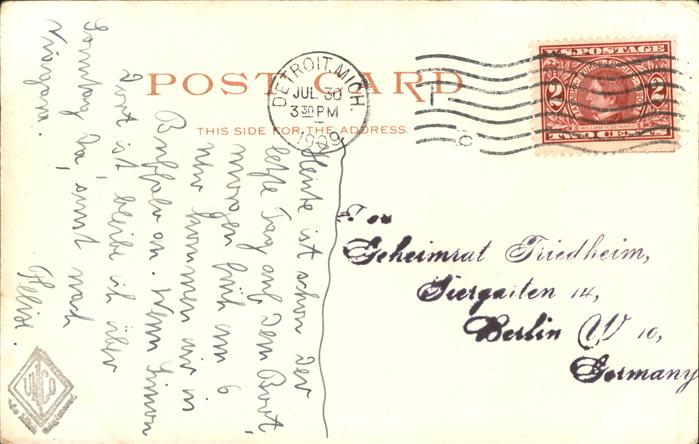 POST CARD
THIS SIDE FOR THE ADDRESS.
DETROIT, MICH.
JUL 30
3 30 PM
1909
U.S. POSTAGE
2 2
WILLIAM H. SEWARD
TWO CENTS
Heute ist schon der
letzte Tag auf dem Boot
morgen früh um 6
Uhr kommen wir in
Buffalo an. Wenn Simon
dort ist bleibe ich über
Sonntag da, sonst nach
Niagara.
Geheimrat Friedheim,
Tiergarten 14,
Berlin W 10,
Germany